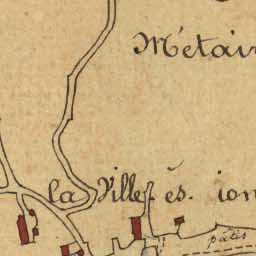 Métair
la Ville ès. ion
patis